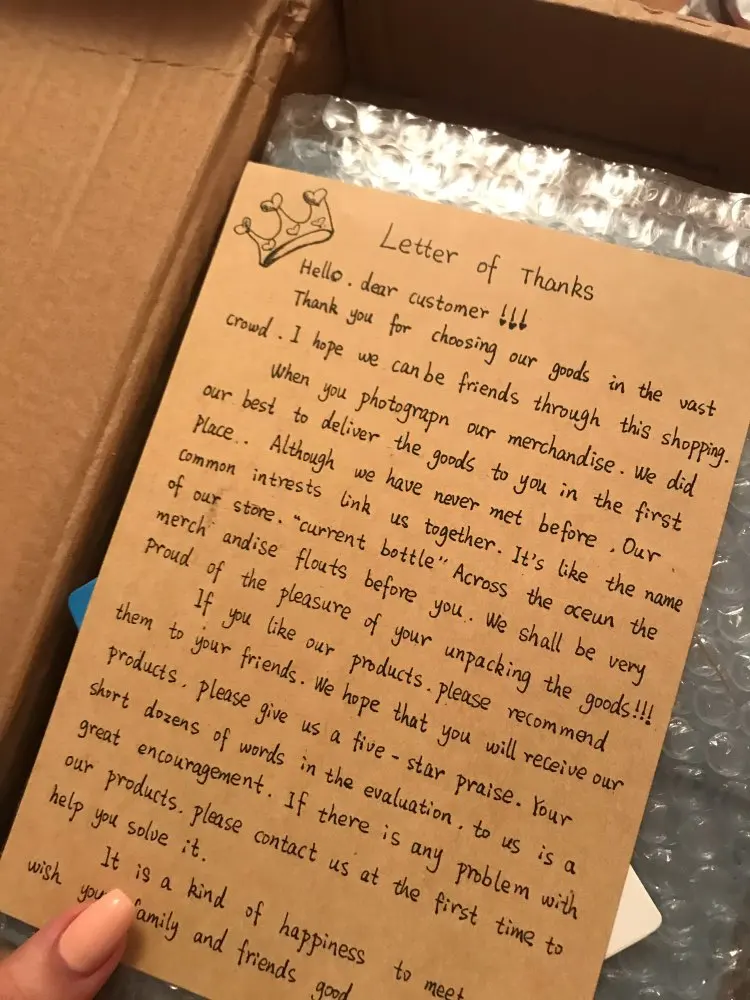 Letter of Thanks
Hello. dear customer !!!
Thank you for choosing our goods in the vast
crowd. I hope we can be friends through this shopping.
When you photograpn our merchandise. We did
our best to deliver the goods to you in the first
place.. Although we have never met before, Our
common intrests link us together. It's like the name
of our store. "current bottle" Across the oceun the
merch andise flouts before you.. We shall be very
proud of the pleasure of your unpacking the goods!!!
If you like our products. please recommend
them to your friends. We hope that you will receive our
products. please give us a five-star praise. Your
short dozens of words in the evaluation. to us is a
great encouragement. If there is any problem with
our products. please contact us at the first time to
help you solve it.
It is a kind of happiness to meet
wish family and friends good